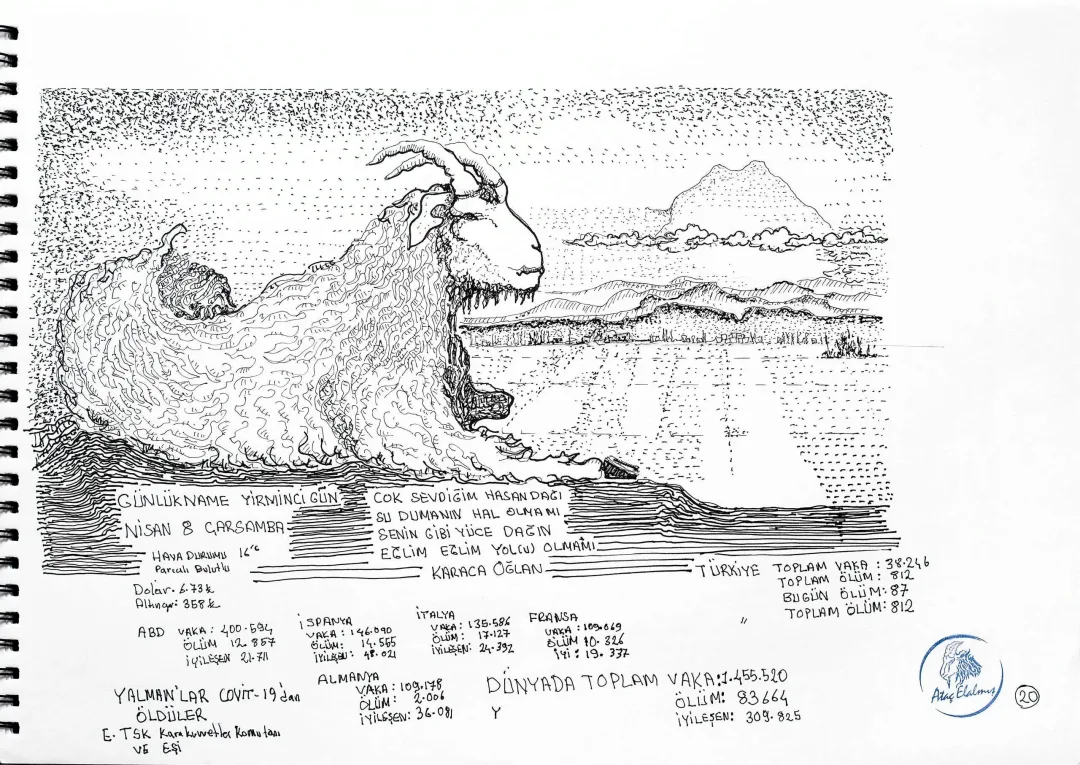 GÜNLÜKNAME YİRMİNCİ GÜN
NİSAN 8 ÇARŞAMBA
HAVA DURUMU 16°C
Parçalı Bulutlu
Dolar. 6.73
Altıngr: 358
ÇOK SEVDİĞİM HASAN DAĞI
ŞU DUMANIN HAL OLMAMI
SENİN GİBİ YÜCE DAĞIN
EĞLİM EĞLİM YOL(U) OLMAMI
KARACA OĞLAN
TÜRKİYE TOPLAM VAKA : 38.246
TOPLAM ÖLÜM : 812
BUGÜN ÖLÜM: 87
TOPLAM ÖLÜM: 812
ABD VAKA : 400.594
ÖLÜM 12.857
İYİLEŞEN 21.711
İSPANYA
VAKA : 146.090
ÖLÜM: 14.555
İYİLEŞEN: 48.021
İTALYA
VAKA : 135.586
ÖLÜM : 17.127
İYİLEŞEN: 24.392
FRANSA
VAKA : 109.069
ÖLÜM 10.326
İYİ : 19.337
ALMANYA
VAKA : 109.178
ÖLÜM : 2.006
İYİLEŞEN: 36.081
DÜNYADA TOPLAM VAKA: 1.455.520
ÖLÜM: 83664
İYİLEŞEN: 309.825
Y
YALMAN'LAR COVİT-19'dan
ÖLDÜLER
E. TSK Karakuvvetler Komutanı
VE EŞİ
Ataç Elalmış
20